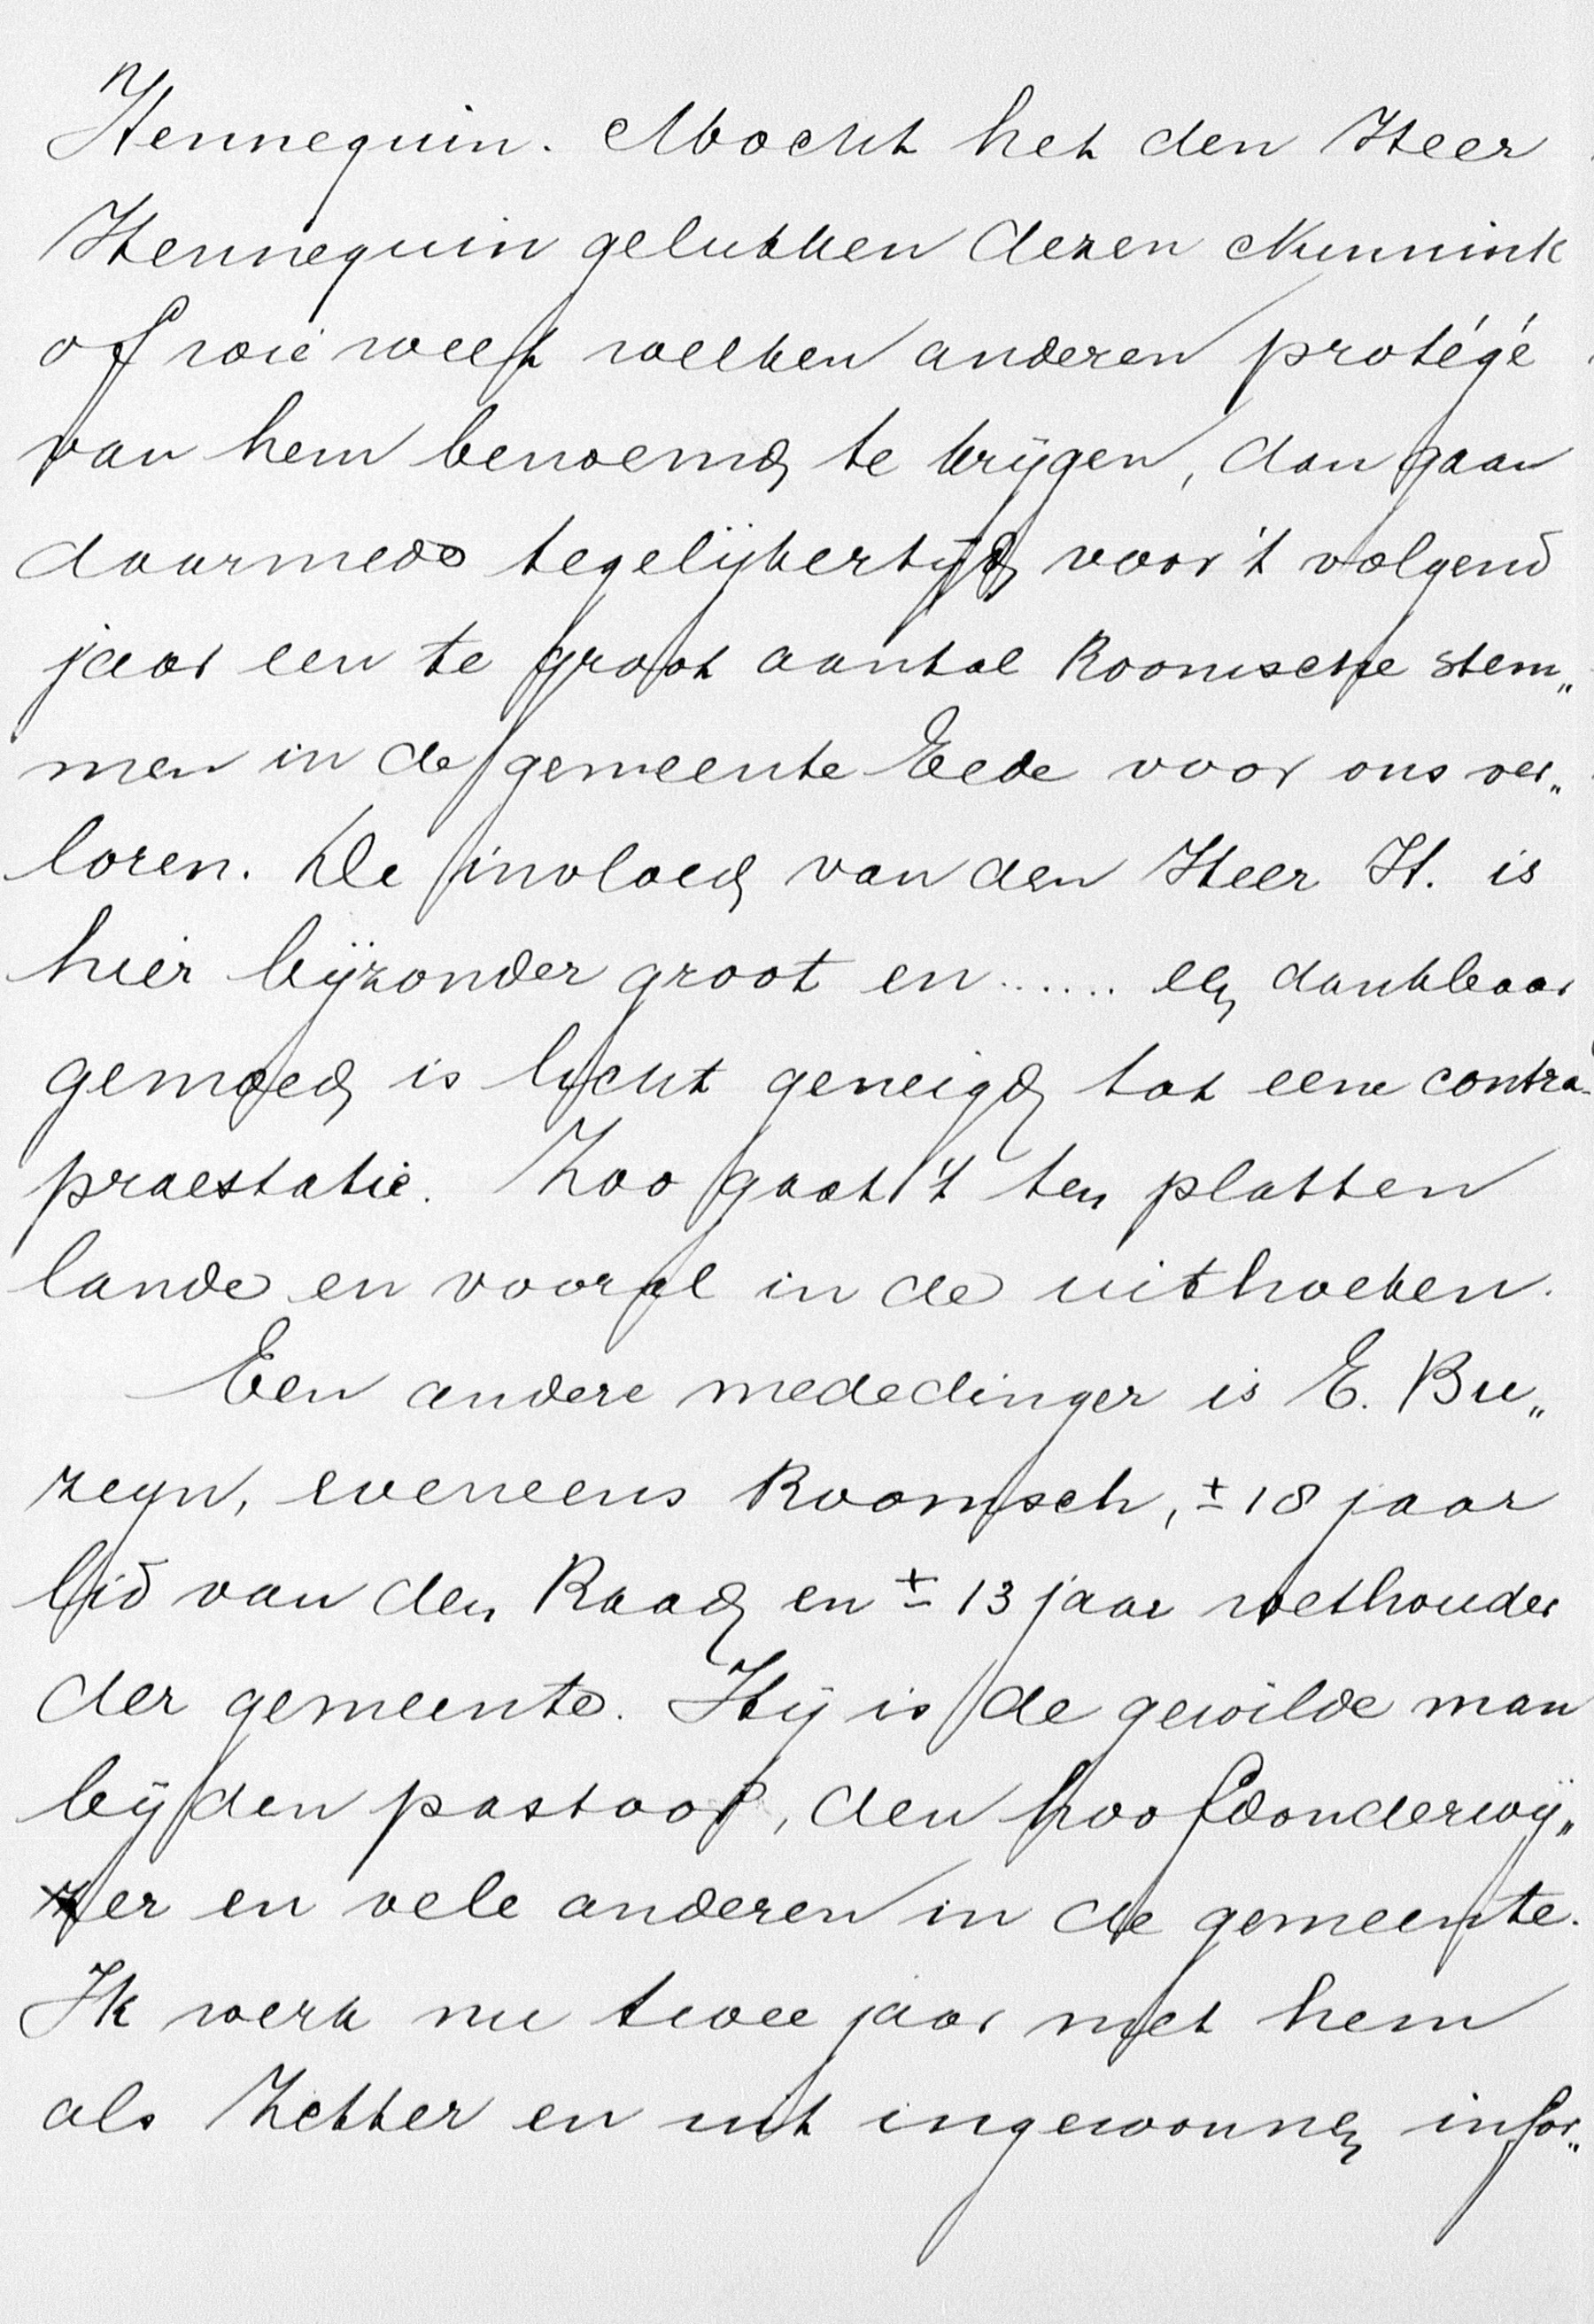 Hennequin. Mocht het den Heer
Hennequin gelukken dezen Nunnink
of wie weet welken anderen protégé
van hem benoemd te krijgen, dan gaan
daarmede tegelijkertijd voor 't volgend
jaar een te groot aantal Roomsche stem„
men in de gemeente Eede voor ons ver„
loren. De invloed van den Heer H. is
hier bijzonder groot en ...... een dankbaar
gemoed is licht geneigd tot eene contra-
praestatie. Zoo gaat 't ten platten
lande en vooral in de uithoeken.
Een andere mededinger is E. Bu„
zeyn, eveneens Roomsch, ± 18 jaar
lid van den Raad en ± 13 jaar wethouder
der gemeente. Hij is de gewilde man
bij den pastoor, den hoofdonderwij„
zer en vele anderen in de gemeente.
Ik werk nu twee jaar met hem
als Zetter en uit ingewonnen infor„